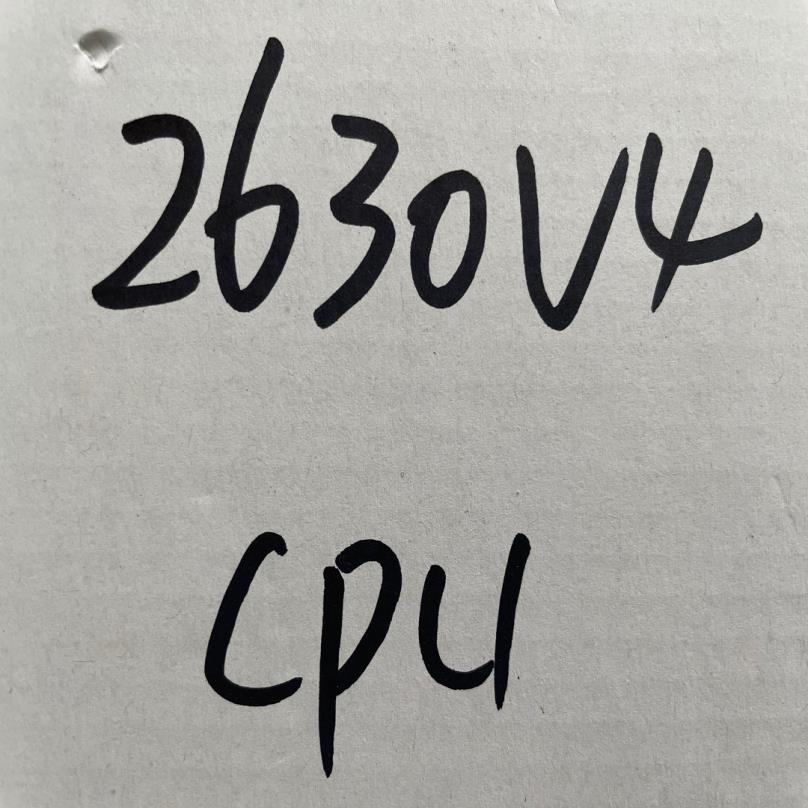 2630V4
CPU